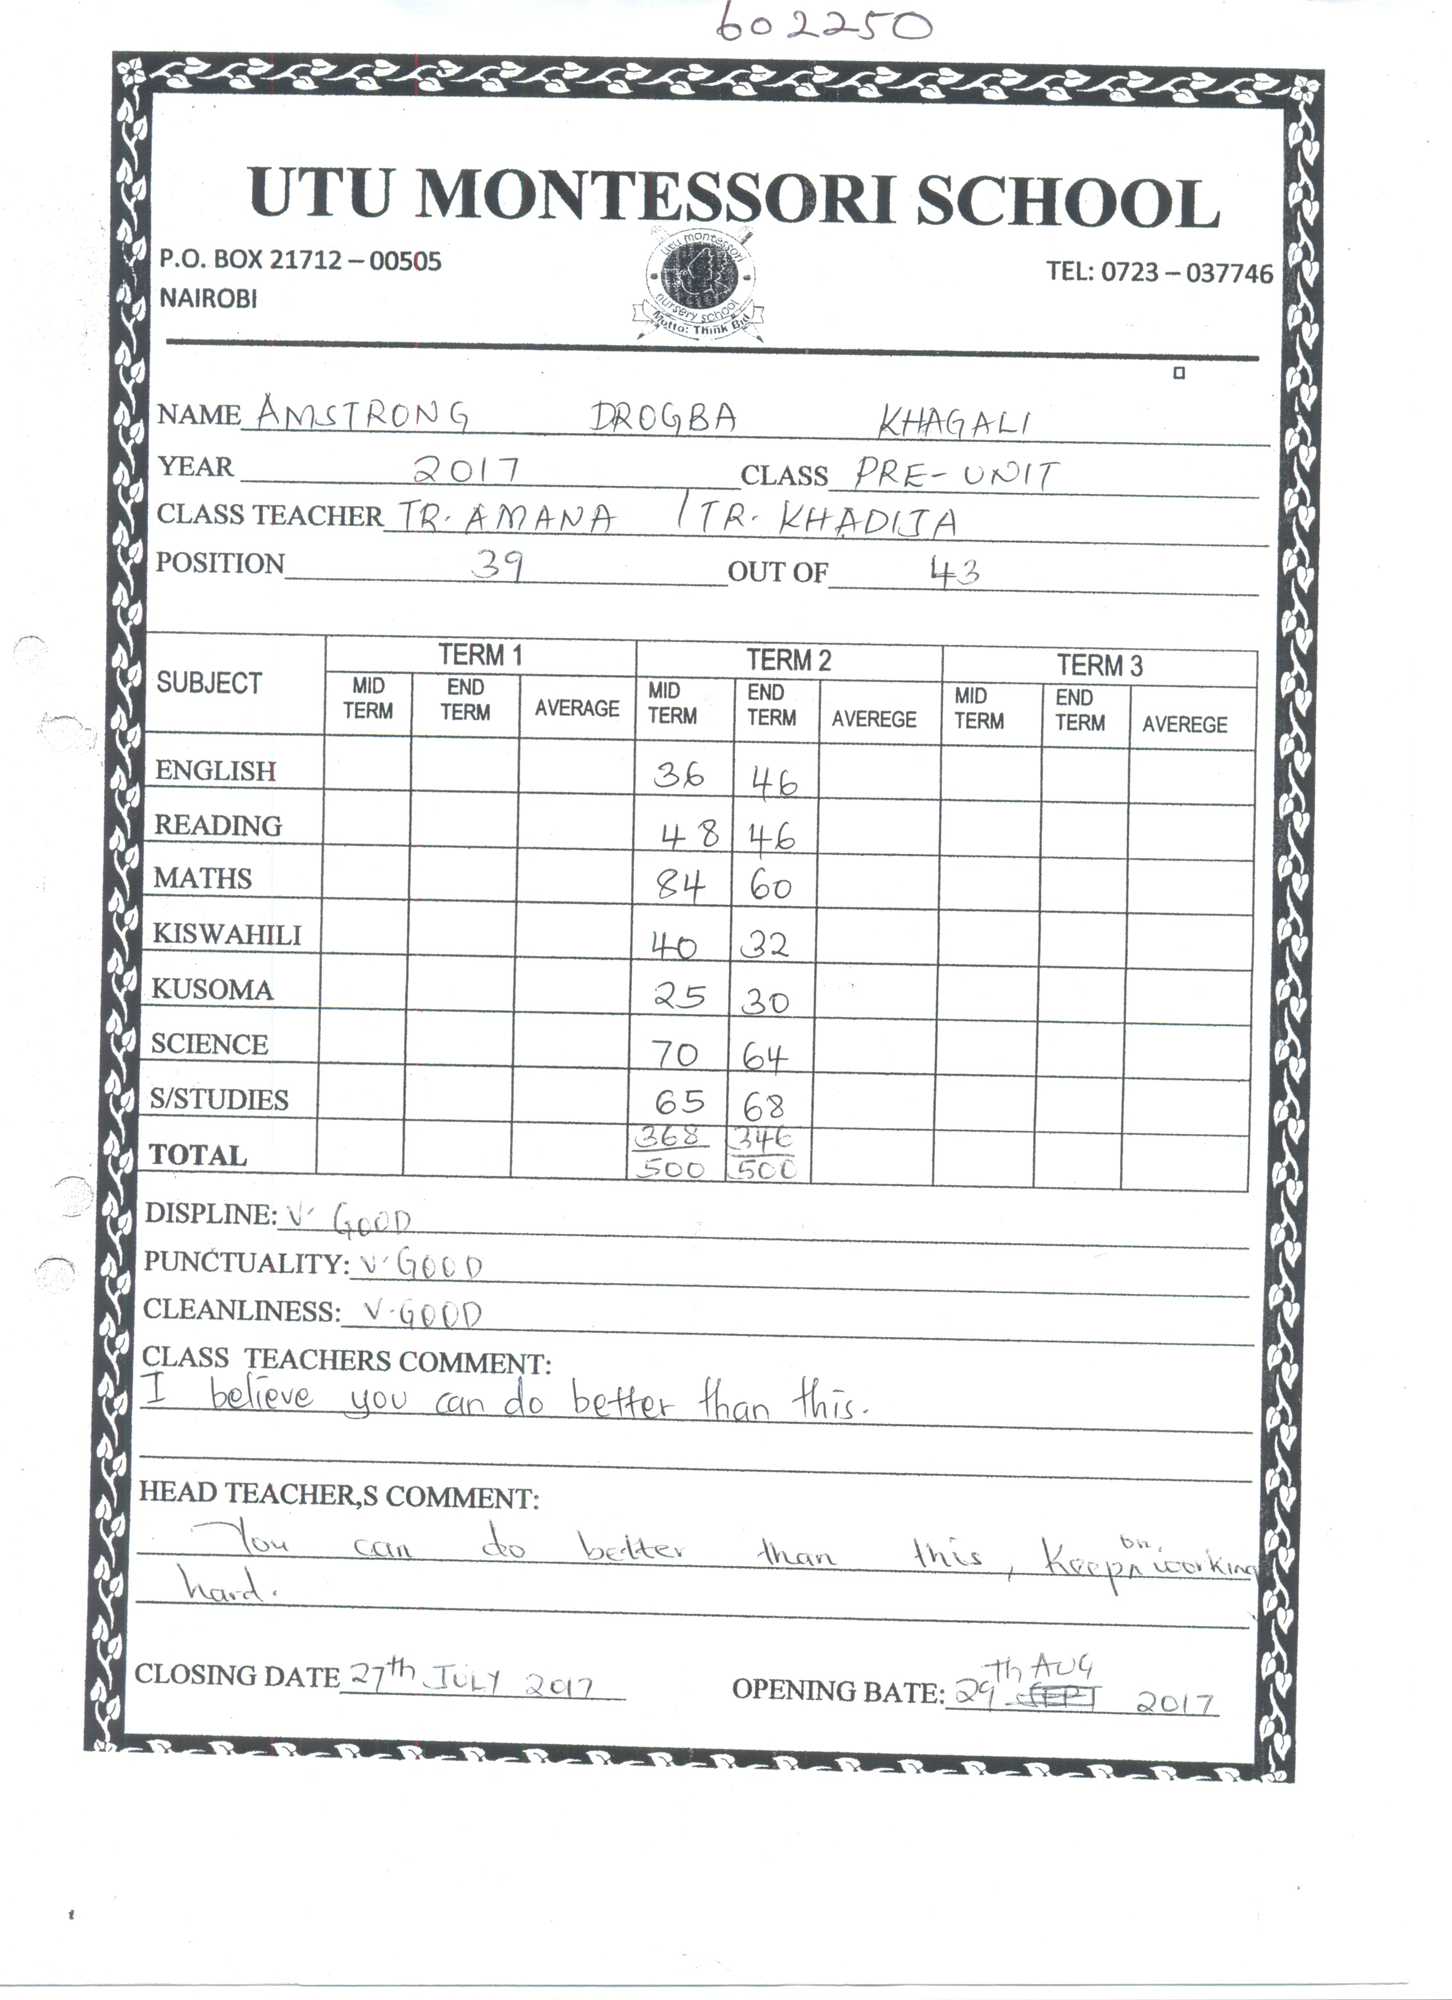 602250
UTU MONTESSORI SCHOOL
P.O. BOX 21712 – 00505
NAIROBI
TEL: 0723 – 037746
Utu montessori
nursery school
Motto: Think Big
NAME AMSTRONG DROGBA KHAGALI
YEAR 2017 CLASS PRE-UNIT
CLASS TEACHER TR. AMANA / TR. KHADIJA
POSITION 39 OUT OF 43
SUBJECT TERM 1 TERM 2 TERM 3
MID TERM END TERM AVERAGE MID TERM END TERM AVEREGE MID TERM END TERM AVEREGE
ENGLISH 36 46
READING 48 46
MATHS 84 60
KISWAHILI 40 32
KUSOMA 25 30
SCIENCE 70 64
S/STUDIES 65 68
TOTAL 368/500 346/500
DISPLINE: V. GOOD
PUNCTUALITY: V. GOOD
CLEANLINESS: V. GOOD
CLASS TEACHERS COMMENT:
I believe you can do better than this.
HEAD TEACHER,S COMMENT:
You can do better than this, Keep on working
hard.
CLOSING DATE 27th JULY 2017 OPENING BATE: 29th AUG 2017